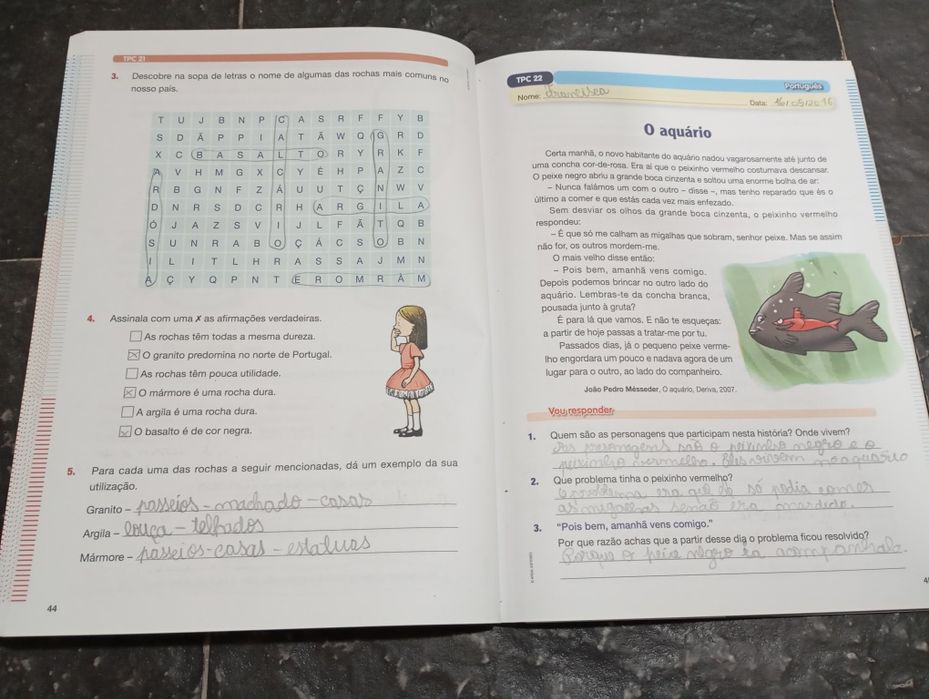 TPC 21
3. Descobre na sopa de letras o nome de algumas das rochas mais comuns no
nosso país.
T U J B N P C A S R F F Y B
S D Ã P P I A T Ã W Q G R D
X C B A S A L T O R Y R K F
A V H M G X C Y É H P A Z C
R B G N F Z Á U U T Ç N W V
D N R S D C R H A R G I L A
Ó J A Z S V I J L F Ã T Q B
S U N R A B O Ç Á C S O B N
I L I T L H R A S S A J M N
A Ç Y Q P N T E R O M R Á M
4. Assinala com uma ✗ as afirmações verdadeiras.
As rochas têm todas a mesma dureza.
O granito predomina no norte de Portugal.
As rochas têm pouca utilidade.
O mármore é uma rocha dura.
A argila é uma rocha dura.
O basalto é de cor negra.
5. Para cada uma das rochas a seguir mencionadas, dá um exemplo da sua
utilização.
Granito – passeios – machado – casas
Argila – louça – telhados
Mármore – passeios – casas – estatuas
44
TPC 22
Português
Nome: Francisca
Data:
O aquário
Certa manhã, o novo habitante do aquário nadou vagarosamente até junto de
uma concha cor-de-rosa. Era aí que o peixinho vermelho costumava descansar.
O peixe negro abriu a grande boca cinzenta e soltou uma enorme bolha de ar:
– Nunca falámos um com o outro – disse –, mas tenho reparado que és o
último a comer e que estás cada vez mais enfezado.
Sem desviar os olhos da grande boca cinzenta, o peixinho vermelho
respondeu:
– É que só me calham as migalhas que sobram, senhor peixe. Mas se assim
não for, os outros mordem-me.
O mais velho disse então:
– Pois bem, amanhã vens comigo.
Depois podemos brincar no outro lado do
aquário. Lembras-te da concha branca,
pousada junto à gruta?
É para lá que vamos. E não te esqueças:
a partir de hoje passas a tratar-me por tu.
Passados dias, já o pequeno peixe verme-
lho engordara um pouco e nadava agora de um
lugar para o outro, ao lado do companheiro.
João Pedro Mésseder, O aquário, Deriva, 2007.
Vou responder
1. Quem são as personagens que participam nesta história? Onde vivem?
As personagens são o peixinho negro e o
peixinho vermelho. Eles vivem no aquário
2. Que problema tinha o peixinho vermelho?
O problema era que só podia comer
as migalhas senão era mordido.
3. "Pois bem, amanhã vens comigo."
Por que razão achas que a partir desse dia o problema ficou resolvido?
Porque o peixe negro ia